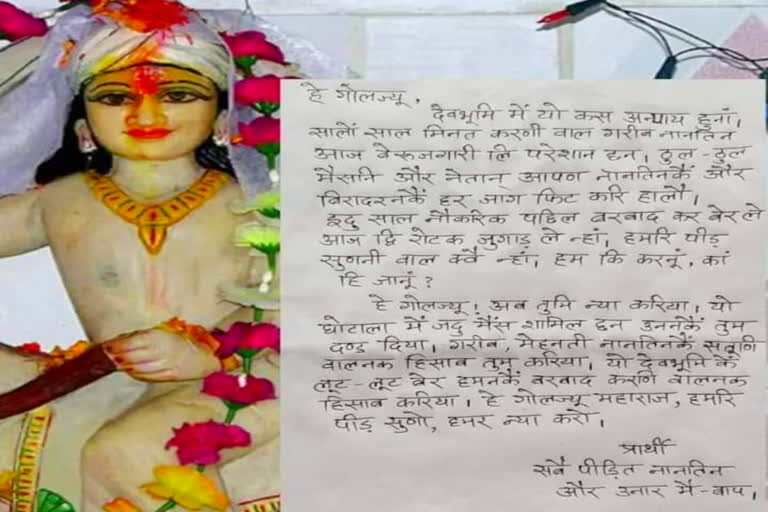 हे गोलज्यू,
देवभूमि में यो कस अन्याय हुनां।
सालों साल मिनत करणी वाल गरीब नानतिन
आज बेरुजगारी लि परेशान छन। ठुल-ठुल
मैसनि और नेतान् आपण नानतिनकैं और
बिरादरनकैं हर जाग फिट करि हालौ।
इदु साल नौकरिक पछिल बरबाद कर बेर ले
आज द्वि रोटक जुगाड़ ले न्हां, हमरि पीड़
सुणनी वाल क्वै न्हां, हम कि करनूं, कां
हि जानूं ?
हे गोलज्यू! अब तुमि न्या करिया, यो
घोटाला में जदु मैंस शामिल छन उननकैं तुम
दण्ड दिया। गरीब, मेहनती नानतिनकैं सतूणि
वालनक हिसाब तुम करिया। यो देवभूमि कैं
लूट-लूट बेर हमनकैं बरबाद करणि वालनक
हिसाब करिया। हे गोलज्यू महाराज, हमरि
पीड़ सुणो, हमर न्या करो।
प्रार्थी
सबै पीड़ित नानतिन
और उनार मै-बाप।